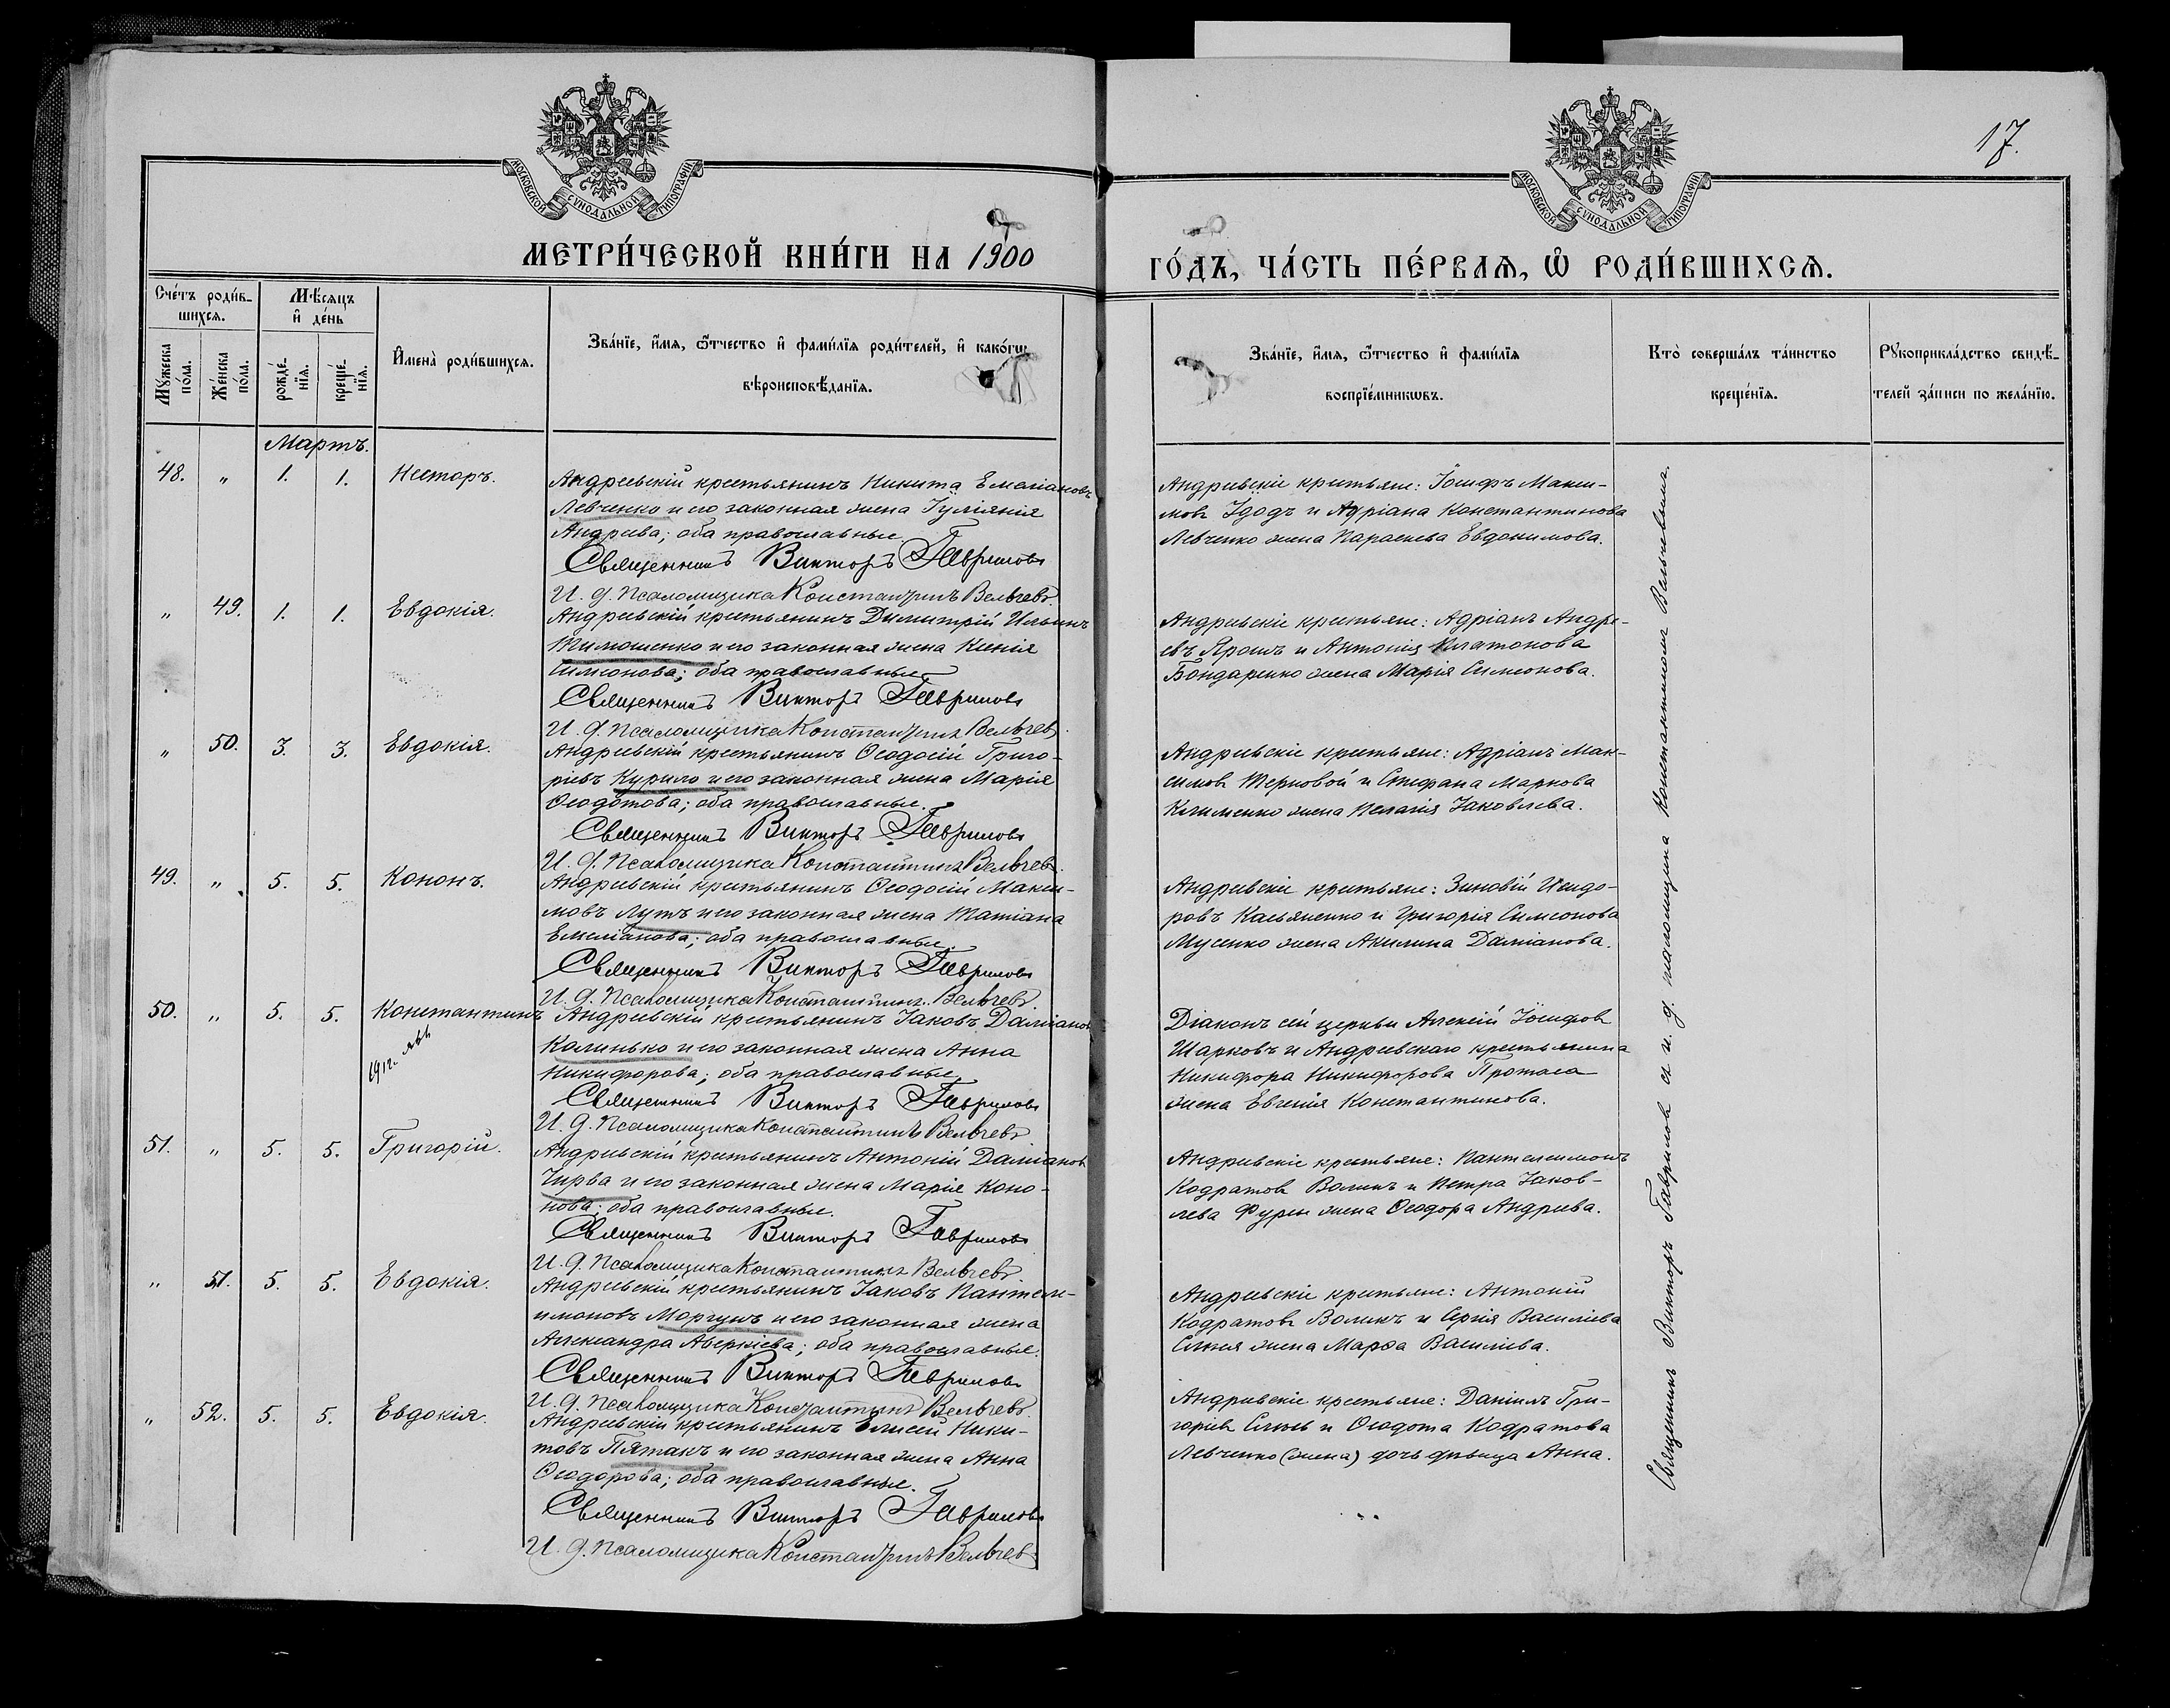 17.
МОСКОВСКОЙ СѴНОДАЛЬНОЙ ТИПОГРАФІИ
МОСКОВСКОЙ СѴНОДАЛЬНОЙ ТИПОГРАФІИ
МЕТРИ́ЧЕСКОЙ КНИ́ГИ НА 1900
ГО́ДЪ, ЧА́СТЬ ПЕ́РВАѦ, Ѡ҆ РОДИ́ВШИХСѦ.
Сче́тъ роди́в-
шихсѧ.
Мѣ́сѧцъ
и҆ де́нь
Мꙋ́жеска
по́ла.
Же́нска
по́ла.
рожде́-
нїѧ.
креще́-
нїѧ.
И҆мена̀ роди́вшихсѧ.
Зва́нїе, и҆́мѧ, ѻ҆́тчество и҆ фами́лїѧ роди́телей, и҆ како́гѡ
вѣроисповѣ́данїѧ.
Зва́нїе, и҆́мѧ, ѻ҆́тчество и҆ фами́лїѧ
воспрїе́мникѡвъ.
Кто̀ соверша́лъ та́инство
креще́нїѧ.
Рꙋкоприкла́дство свидѣ́-
телей за́писи по жела́нїю.
Мартъ.
48. „ 1. 1. Несторъ.
Андреевскій крестьянинъ Никита Емеліановъ
Левченко и его законная жена Іуліанія
Андреева; оба православные.
Священникъ Викторъ Гавриловъ
И. д. Псаломщика Константинъ Вельчевъ.
Андреевскіе крестьяне: Іосифъ Макси-
мовъ Удодъ и Адріана Константинова
Левченко жена Параскева Евдокимова.
„ 49. 1. 1. Евдокія.
Андреевскій крестьянинъ Димитрій Ильинъ
Тимошенко и его законная жена Ксенія
Симеонова; оба православные.
Священникъ Викторъ Гавриловъ
И. д. Псаломщика Константинъ Вельчевъ.
Андреевскіе крестьяне: Адріанъ Андре-
евъ Ярошъ и Антонія Платонова
Бондаренко жена Марія Симеонова.
„ 50. 3. 3. Евдокія.
Андреевскій крестьянинъ Ѳеодосій Григо-
ріевъ Курило и его законная жена Марія
Ѳеодотова; оба православные.
Священникъ Викторъ Гавриловъ
И. д. Псаломщика Константинъ Вельчевъ.
Андреевскіе крестьяне: Адріанъ Мак-
симовъ Терновой и Стефана Маркова
Клименко жена Пелагія Іаковлева.
49. „ 5. 5. Кононъ.
Андреевскій крестьянинъ Ѳеодосій Макси-
мовъ Лутъ и его законная жена Татіана
Емеліанова; оба православные.
Священникъ Викторъ Гавриловъ
И. д. Псаломщика Константинъ Вельчевъ.
Андреевскіе крестьяне: Зиновій Исидо-
ровъ Касьяненко и Григорія Симеонова
Мусенко жена Акилина Даміанова.
50. „ 5. 5. Константинъ
1912.
Андреевскій крестьянинъ Іаковъ Даміановъ
Калинько и его законная жена Анна
Никифорова; оба православные.
Священникъ Викторъ Гавриловъ
И. д. Псаломщика Константинъ Вельчевъ.
Діаконъ сей церкви Алексій Іосифовъ
Шарковъ и Андреевскаго крестьянина
Никифора Никифорова Протаса
жена Евгенія Константинова.
51. „ 5. 5. Григорій.
Андреевскій крестьянинъ Антоній Даміановъ
Чирва и его законная жена Марія Коно-
нова; оба православные.
Священникъ Викторъ Гавриловъ
И. д. Псаломщика Константинъ Вельчевъ.
Андреевскіе крестьяне: Пантелеимонъ
Кодратовъ Воликъ и Петра Іаков-
лева Фурсы жена Ѳеодора Андреева.
„ 51. 5. 5. Евдокія.
Андреевскій крестьянинъ Іаковъ Пантеле-
имоновъ Моргунъ и его законная жена
Александра Аверкіева; оба православные.
Священникъ Викторъ Гавриловъ
И. д. Псаломщика Константинъ Вельчевъ.
Андреевскіе крестьяне: Антоній
Кодратовъ Воликъ и Сергія Василіева
жена Марѳа Василіева.
„ 52. 5. 5. Евдокія.
Андреевскій крестьянинъ Елисей Ники-
товъ Пятакъ и его законная жена Анна
Ѳеодорова; оба православные.
Священникъ Викторъ Гавриловъ
И. д. Псаломщика Константинъ Вельчевъ
Андреевскіе крестьяне: Даніилъ Гри-
горіевъ и Ѳеодота Кодратова
Левченко (жена) дочь дѣвица Анна.
Священникъ Викторъ Гавриловъ съ и. д. псаломщика Константиномъ Вельчевымъ.